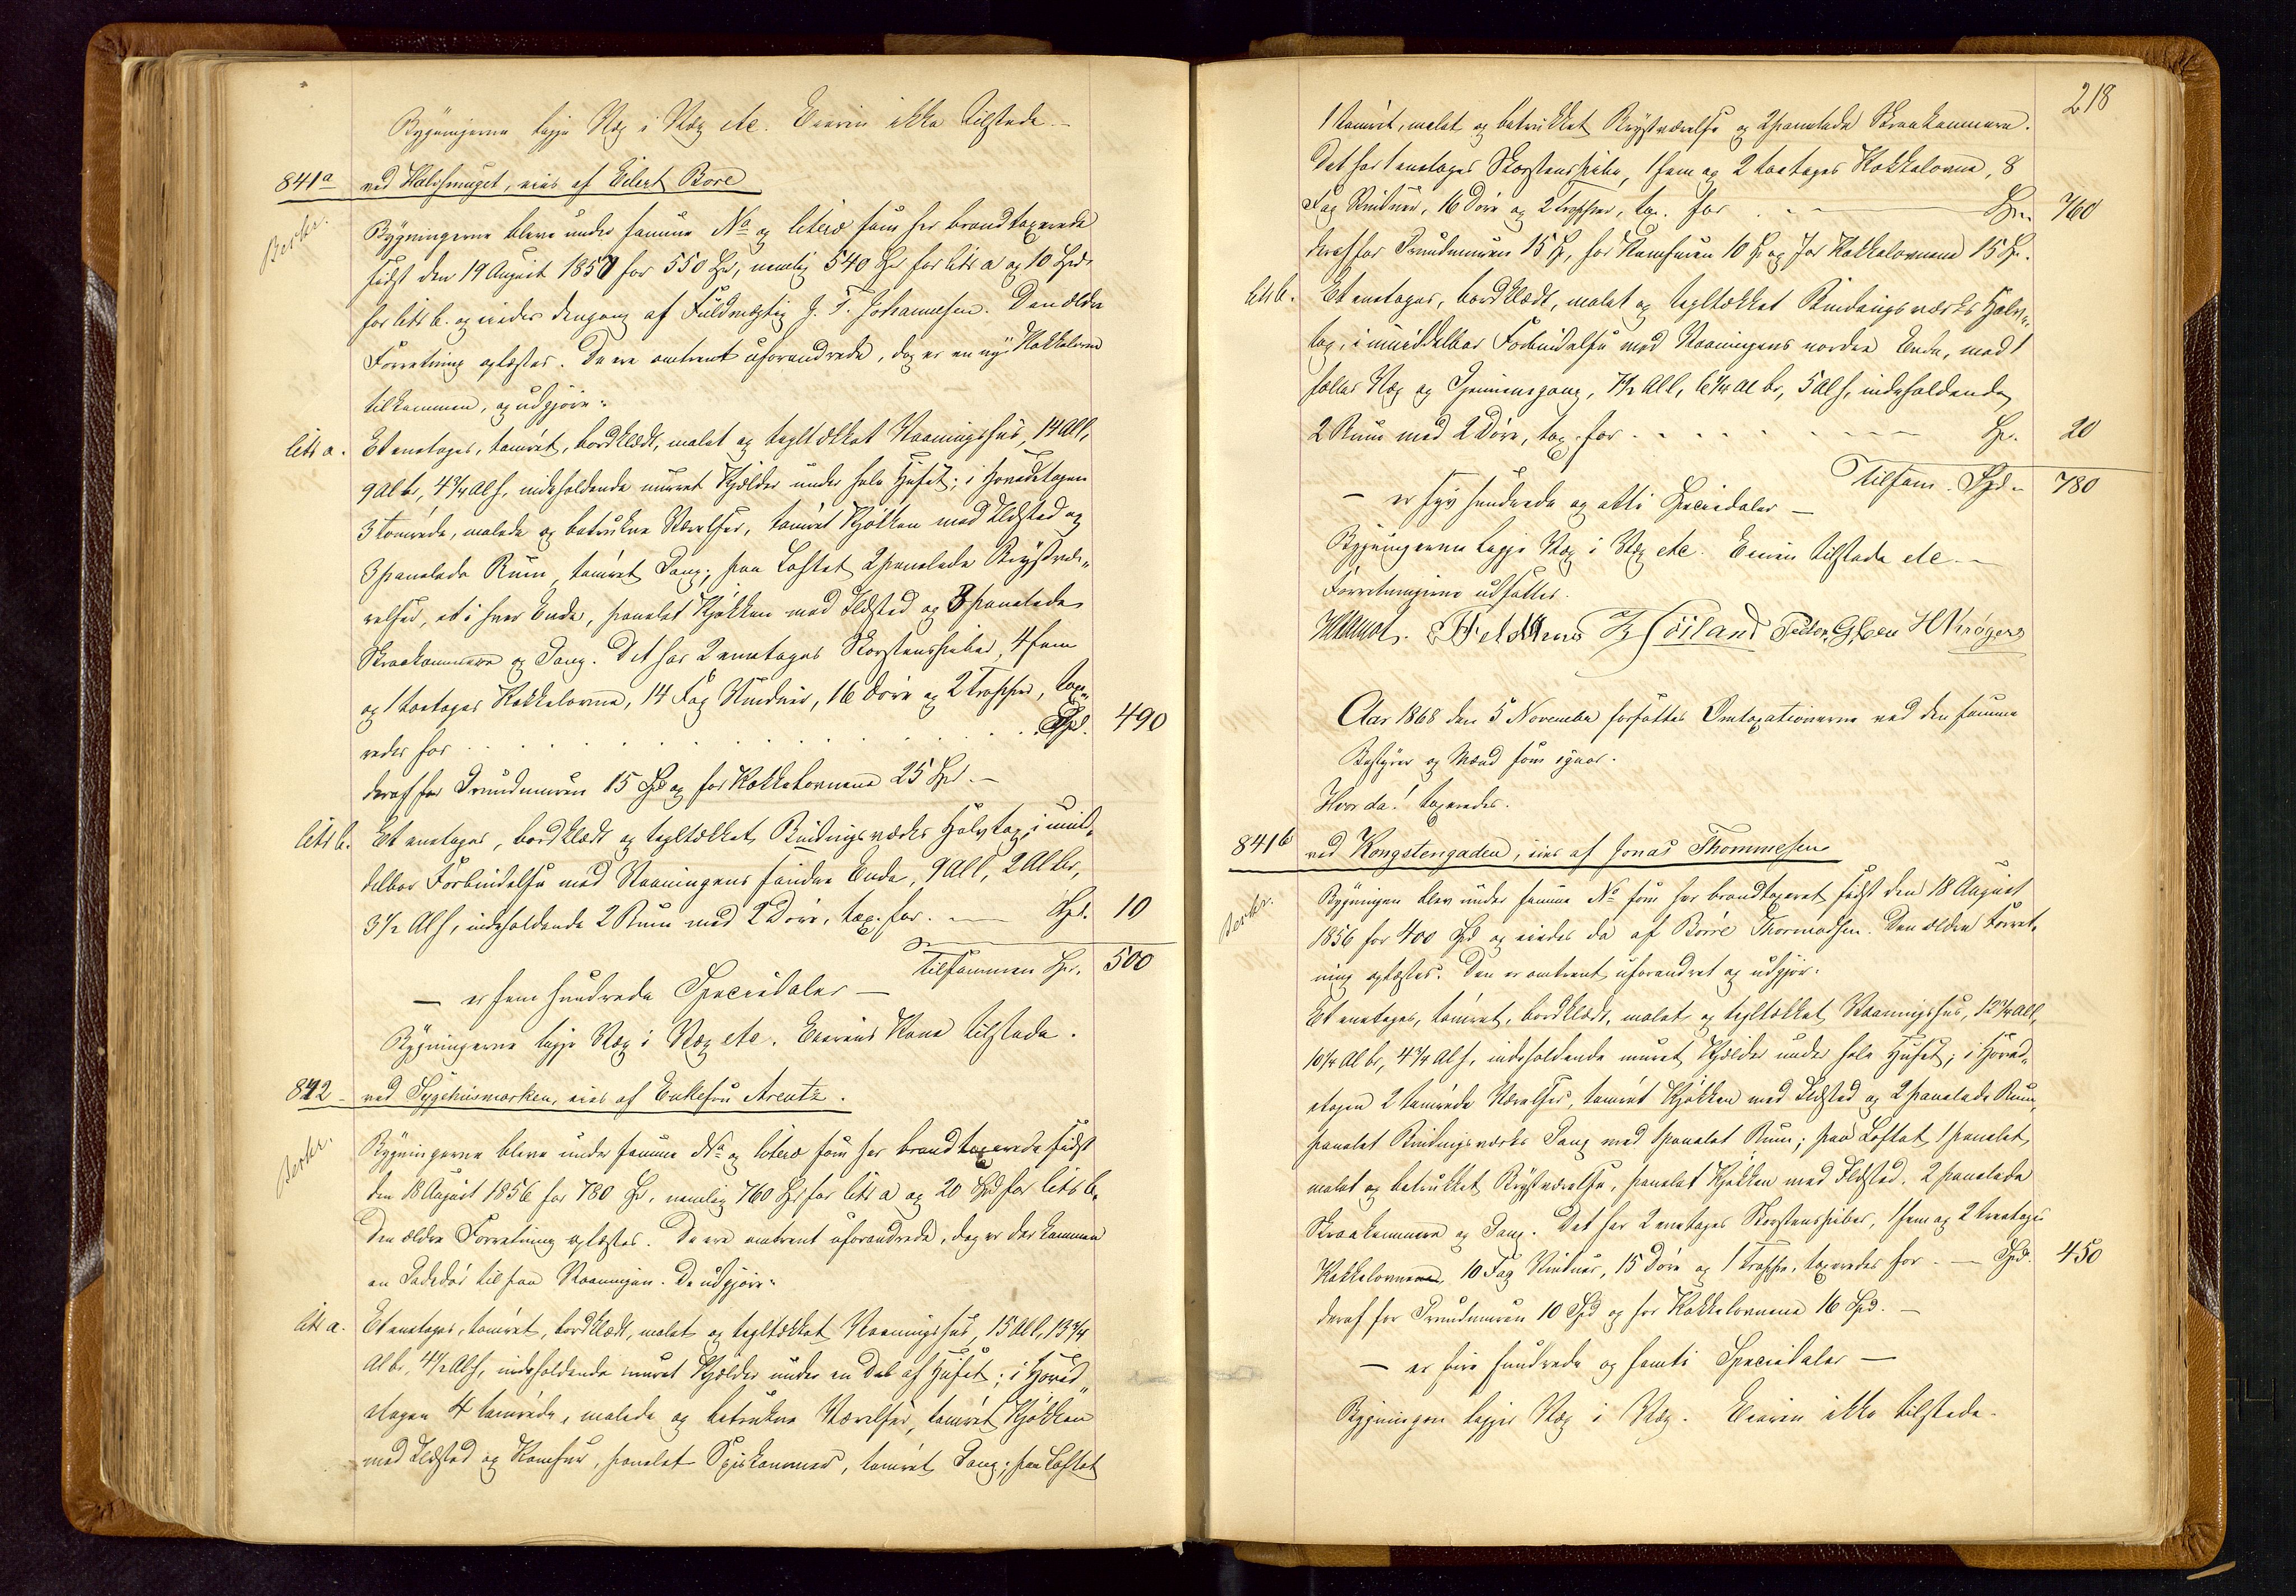 Bygningerne ligge Væg i Væg etc. Eieren ikke tilstede.—
841a ved Halvsmuget, eies af Eilert Bore
Beskr. Bygningerne bleve under samme No og litræ som her brandtaxerede
sidst den 19 August 1857 for 550 Spd, nemlig 540 Spd for litr a og 10 Spd.
for litr b. og eiedes dengang af Fuldmægtig J. T. Johannesen. Den ældre
Forretning oplæstes. De ere omtrent uforandrede, dog er en ny Kakkelovn
tilkommen, og udgjøre:
litr a. Et enetages, tømret, bordklædt, malet og tegltækket Vaaningshus, 14 Al l,
9 Al br, 4 3/4 Al h, indeholdende muret Kjælder under hele Huset; i Hovedetagen
3 tømrede, malede og betrukne Værelser, tømret Kjøkken med Ildsted og
3 panelede Rum, tømret Gang; paa Loftet 2 panelede Kvistvæ-
relser, et i hver Ende, panelet Kjøkken med Ildsted og 3 panelede
Skraakammere og Gang. Det har 2 enetages Skorstenspiber, 4 fem
og 1 toetages Kakkelovne, 14 Fag Vinduer, 16 Døre og 2 Trapper, taxe-
redes for . . . . . Spd. 490
deraf for Grundmuren 15 Spd og for Kakkelovnene 25 Spd.—
litr b. Et enetages, bordklædt og tegltækket Bindingsværks Halvtag, i umid-
delbar Forbindelse med Vaaningens søndre Ende, 9 Al l, 2 Al br,
3 1/2 Al h, indeholdende 2 Rum med 2 Døre, tax. for. — Spd. 10
Tilsammen Spd. 500
— er fem hundrede Speciedaler —
Bygningerne ligge Væg i Væg etc. Eierens Kone tilstede.
842 - ved Sygehusmarken, eies af Enkefru Arentz.
Beskr. Bygningerne bleve under samme No og litræ som her brandtaxerede sidst
den 18 August 1856 for 780 Spd, nemlig 760 Spd for litr a og 20 Spd for litr b.
Den ældre Forretning oplæstes. De ere omtrent uforandrede, dog er der kommen
en Gadedør til paa Vaaningen. De udgjøre:
litr a. Et enetages, tømret, bordklædt, malet og tegltækket Vaaningshus, 15 Al l, 13 3/4
Al br, 4 1/2 Al h, indeholdende muret Kjælder under en Del af Huset; i Hoved-
etagen 4 tømrede, malede og betrukne Værelser, tømret Kjøkken
med Ildsted og Komfur, panelet Spiskammer, tømret Gang; paa Loftet
218
1 tømret, malet og betrukket Kvistværelse og 2 panelede Skraakammere.
Det har 1 enetages Skorstenspibe, 1 fem og 2 toetages Kakkelovne, 8
Fag Vinduer, 16 Døre og 2 Trapper, tax. for . — Spd. 760
deraf for Grundmuren 15 Sp, for Komfuren 10 Sp og for Kakkelovnene 15 Sp.
litr b. Et enetages, bordklædt, malet og tegltækket Bindingsværks Halv-
tag, i umiddelbar Forbindelse med Vaaningens nordre Ende, med 1
fælles Væg og Gjennemgang, 7 1/2 Al l, 6 1/4 Al br, 5 Al h, indeholdende
2 Rum med 2 Døre, tax. for . . . . Spd. 20
Tilsam. Spd. 780
— er syv hundrede og otti Speciedaler —
Bygningerne ligge Væg i Væg etc. Eieren tilstede etc.—
Forretningerne udsattes.
Høiland Peder Gjøen H Krøger
Aar 1868 den 5 November fortsattes Omtaxationerne ved den samme
Bestyrer og Mænd som igaar.
Hvor da! taxeredes.
841b ved Kongstengaden, eies af Jonas Thommesen
Beskr. Bygningen blev under samme No som her brandtaxeret sidst den 18 August
1856 for 400 Spd og eiedes da af Börre Thormodsen. Den ældre Forret-
ning oplæstes. Den er omtrent uforandret og udgjør:
Et enetages, tømret, bordklædt, malet og tegltækket Vaaningshus, 12 3/4 Al l,
10 1/4 Al br, 4 3/4 Al h, indeholdende muret Kjælder under hele Huset; i Hoved-
etagen 2 tømrede Værelser, tømret Kjøkken med Ildsted og 2 panelede Rum,
panelet Bindingsværks Gang med 1 panelet Rum; paa Loftet 1 panelet,
malet og betrukket Kvistværelse, panelet Kjøkken med Ildsted, 2 panelede
Skraakammere og Gang. Det har 2 enetages Skorstenspiber, 1 fem og 2 treetages
Kakkelovne, 10 Fag Vinduer, 15 Døre og 1 Trappe, taxeredes for . — Spd. 450
deraf for Grundmuren 10 Spd og for Kakkelovnene 16 Spd.—
— er fire hundrede og femti Speciedaler —
Bygningen ligger Væg i Væg. Eieren ikke tilstede.